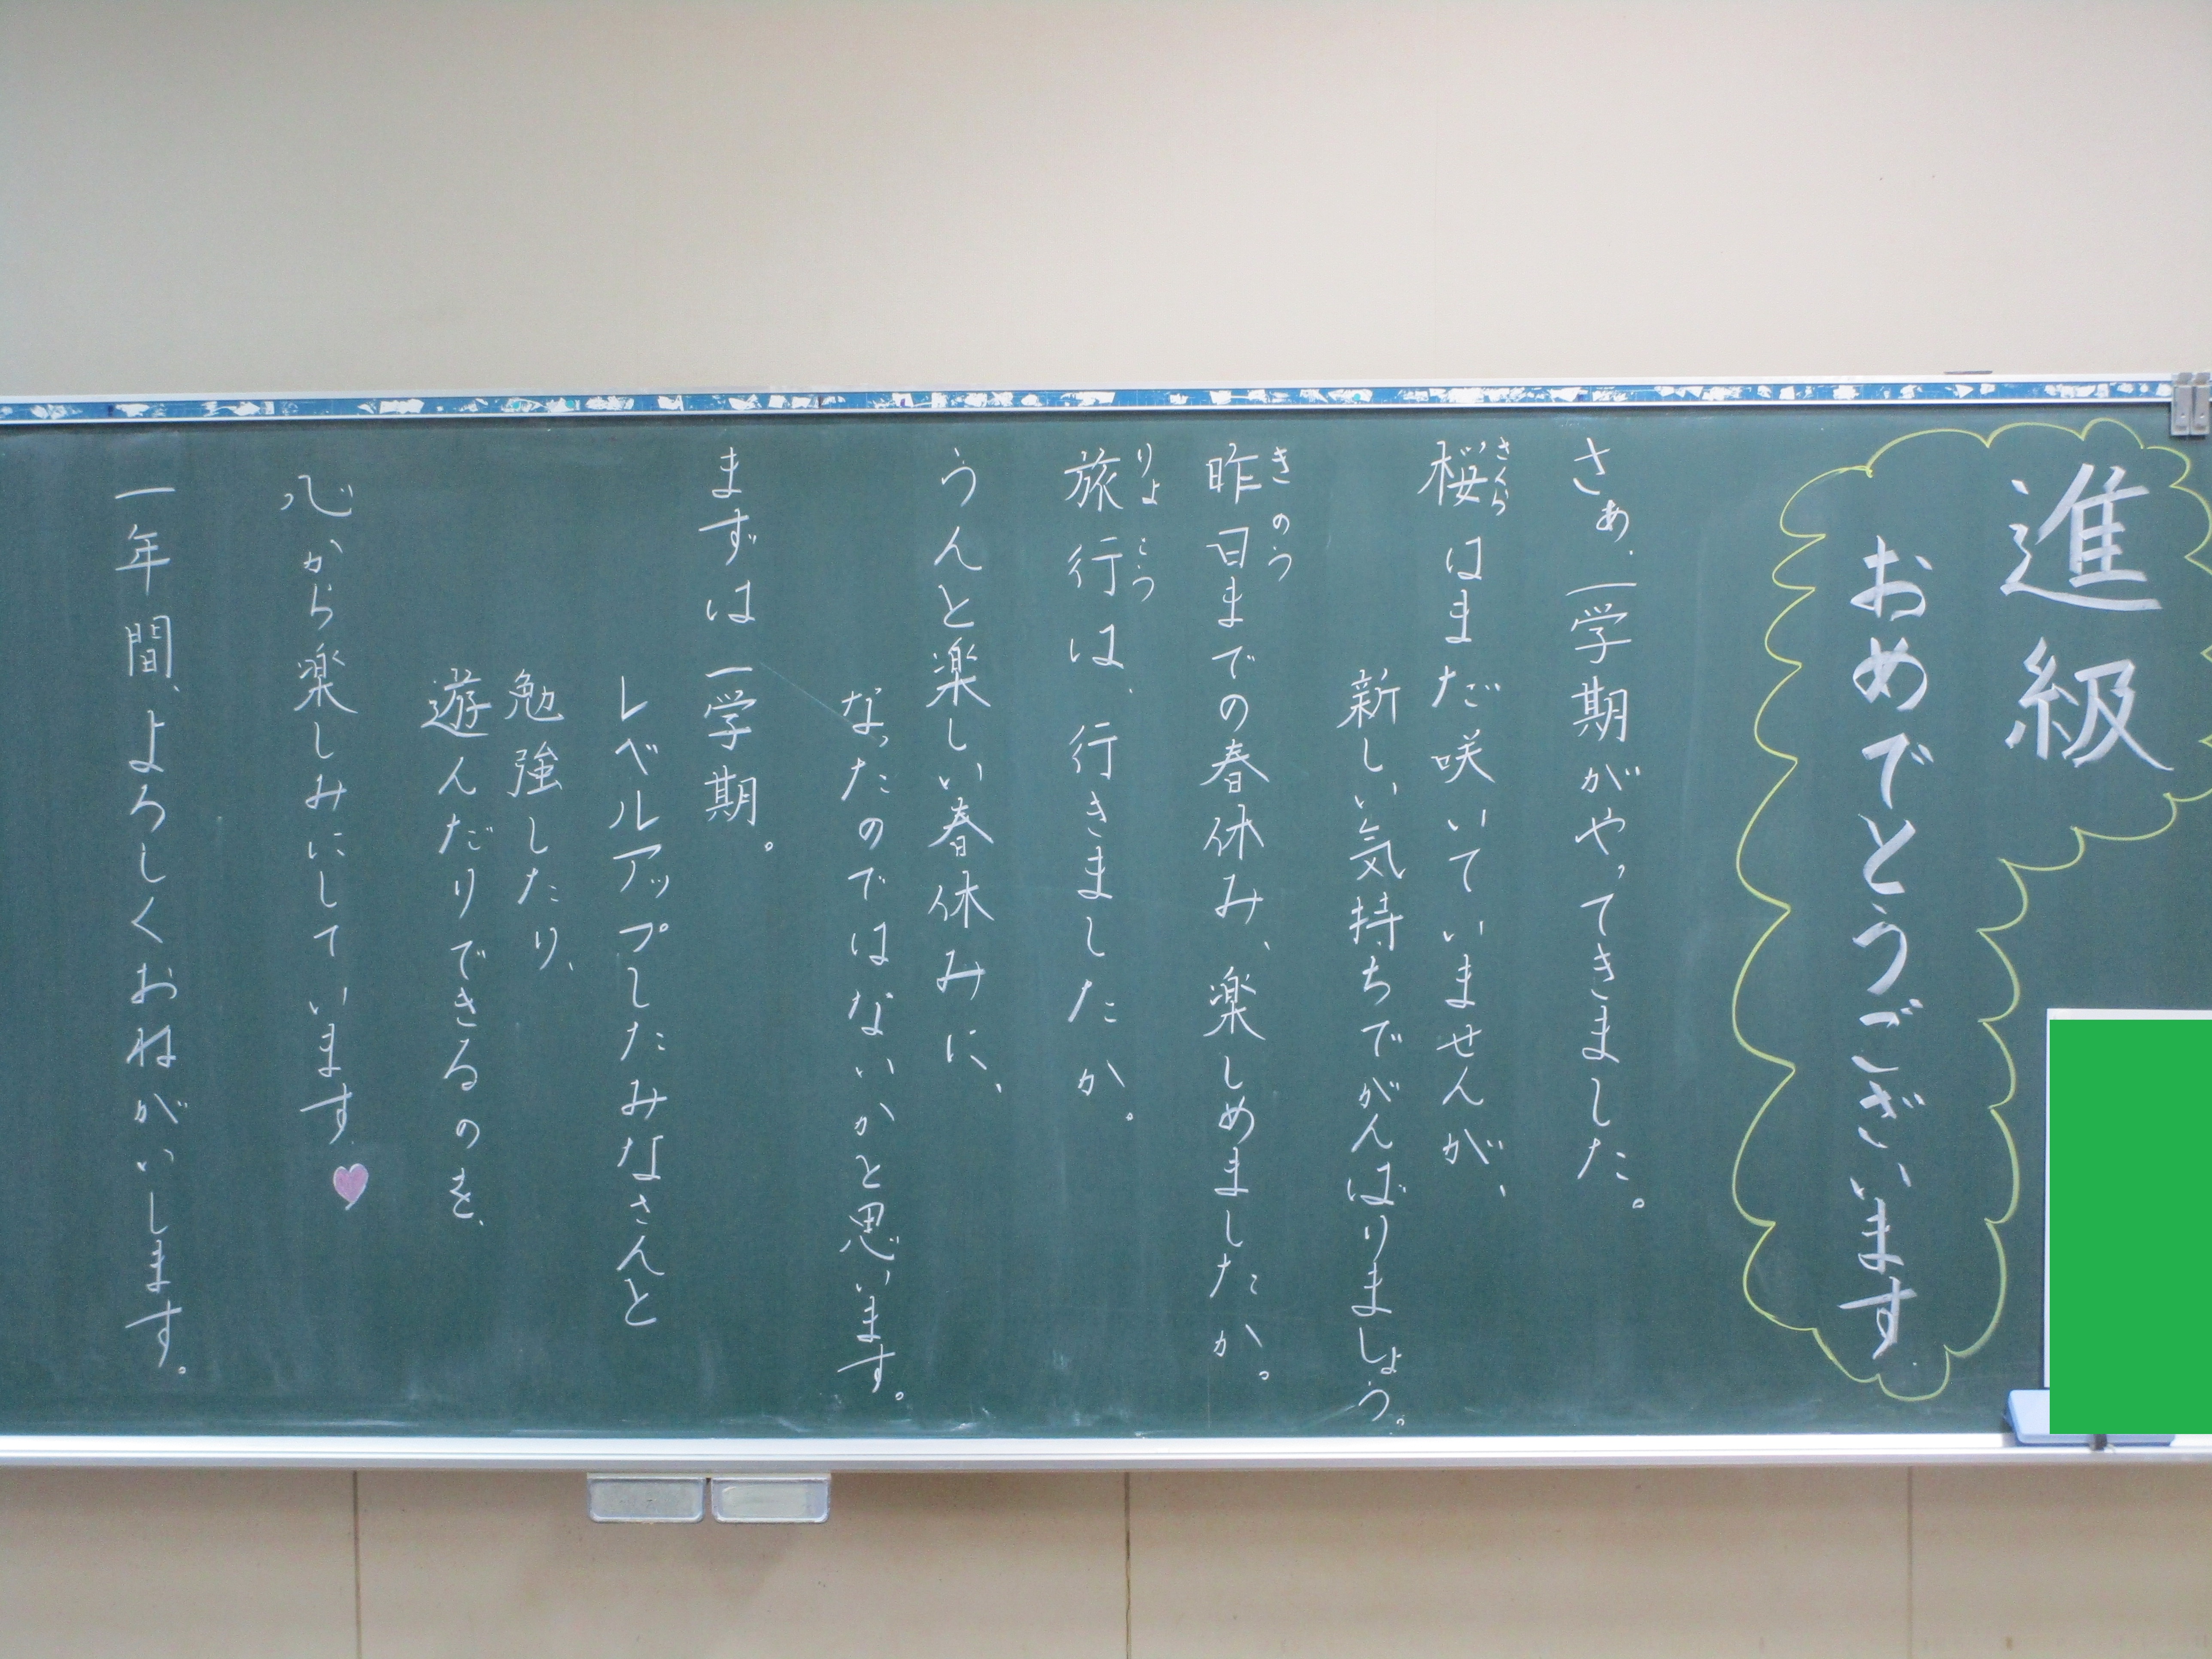 進級
おめでとうございます
さぁ、一学期がやってきました。
桜はまだ咲いていませんが、
さくら
新しい気持ちでがんばりましょう。
昨日までの春休み、楽しめましたか。
きのう
旅行は、行きましたか。
りょこう
うんと楽しい春休みに、
なったのではないかと思います。
まずは一学期。
レベルアップしたみなさんと
勉強したり、
遊んだりできるのを、
心から楽しみにしています
一年間、よろしくおねがいします。